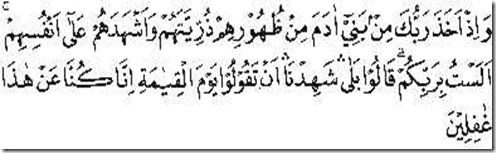 وَاِذْ اَخَذَ رَبُّكَ مِنْ بَنِيْٓ اٰدَمَ مِنْ ظُهُوْرِهِمْ ذُرِّيَّتَهُمْ وَاَشْهَدَهُمْ عَلٰٓى اَنْفُسِهِمْ
اَلَسْتُ بِرَبِّكُمْۗ قَالُوْا بَلٰىۛ شَهِدْنَاۛ اَنْ تَقُوْلُوْا يَوْمَ الْقِيٰمَةِ اِنَّا كُنَّا عَنْ هٰذَا
غٰفِلِيْنَ